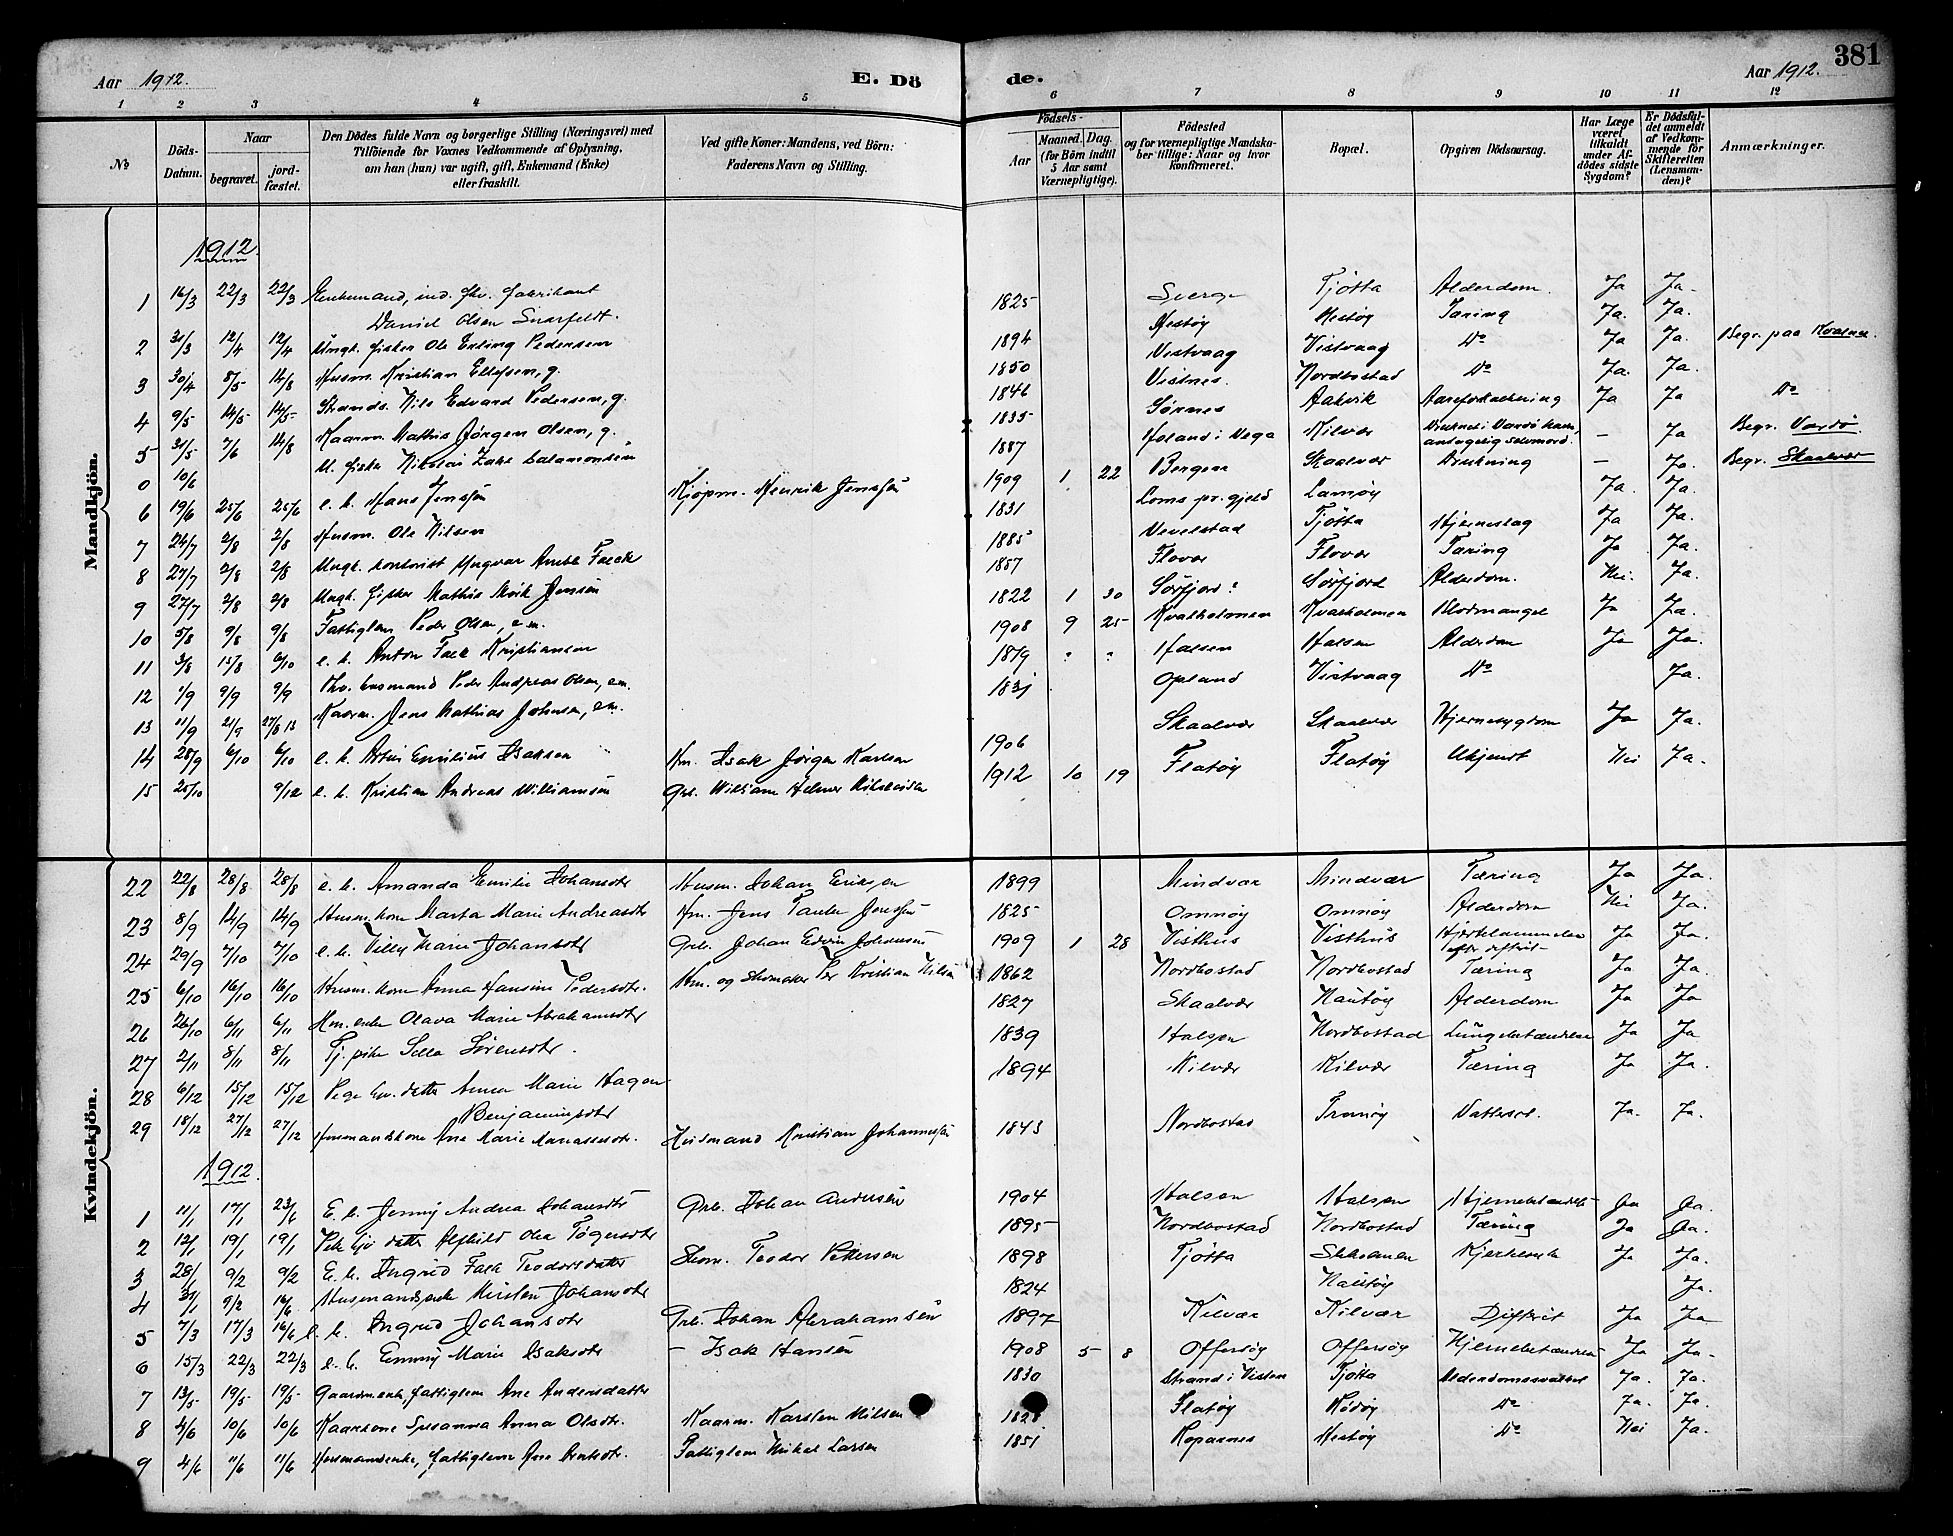 Aar 1912.
E. Dö
de.
Aar 1912.
381
1 2 3 4 5 6 7 8 9 10 11 12
No
Döds-Datum.
Naar
begravet.
jord-fæstet.
Den Dödes fulde Navn og borgerlige Stilling (Næringsvei) med
Tilföiende for Voxnes Vedkommende af Oplysning,
om han (hun) var ugift, gift, Enkemand (Enke)
eller fraskilt.
Ved gifte Koner: Mandens, ved Börn:
Faderens Navn og Stilling.
Födsels-
Aar
Maaned. Dag.
(for Börn indtil
5 Aar samt
Værnepligtige).
Födested
og for værnepligtige Mandska-
ber tillige: Naar og hvor
konfirmeret.
Bopæl.
Opgiven Dödsaarsag.
Har Læge
været
tilkaldt
under Af-
dödes sidste
Sygdom?
Er Dödsfal-
det anmeldt
af Vedkom-
mende for
Skifteretten
(Lensman-
den)?
Anmærkninger.
Mandkjön.
1912.
1 16/3 22/3 22/3 Enkemand, ind. fhv. fabrikant
Daniel Olsen 1825 Tjøtta Alderdom. Ja Ja.
2 31/3 12/4 12/4 Ungk. fisker Ole Erling Pedersen 1894 Hestøy Hestøy Tæring Ja. Ja.
3 30/4 8/5 14/8 Husm. Kristian Ellefsen, g. 1850 Vistvaag Vistvaag Do Ja Ja. Begr. paa
4 9/5 14/5 14/5 Strands. Nils Edvard Pedersen, g. 1846 Vistnes. Nordbostad Do Ja. Ja.
5 31/5 7/6 14/8 Kaarm. Mathis Jørgen Olsen, g. 1835 Sørnes Aakvik Aareforkalkning Ja Ja Do
0 10/6 U. fisker Nikolai Salamonsen 1887 Holand i Vega Kilvær Druknet i Vardø havn,
antagelig selvmord. – Ja Begr. Vardø.
6 19/6 25/6 25/6 e. b. Hans Jenssen Kjøpm. Henrik Jenssen 1909 1 22 Bergen Skaalvær Drukning – Ja. Begr. Skaalvær
7 24/7 2/8 2/8 Husm. Ole Nilsen 1831 Loms pr.gjeld Lamøy Ja. Ja.
8 27/7 2/8 2/8 Ungk. kontorist Yngvar Falck 1885 Vevelstad Tjøtta Hjerneslag Ja Ja.
9 27/7 2/8 2/8 Ungk. fisker Mathis Jensen 1857 Flovær Flovær Tæring Ja Ja.
10 5/8 9/8 9/8 Fattiglem Peder Olsen, e.m. 1822 1 30 Sørfjord? Sørfjord Alderdom. Nei. Ja.
11 3/8 15/8 6/10 e. b. Anton Falck Kristiansen 1908 9 25 Kvalholmen Kvalholmen Blodmangel Ja Ja.
12 1/9 9/9 9/9 Fhv. husmand Peder Andreas Olsen, e.m. 1819 ? ? Halsen Halsen Alderdom Ja Ja.
13 11/9 21/9 27/8 13 Kaarm. Jens Mathias Johnsen, e.m. 1831 Opland Vistvaag Do Ja.
14 28/9 6/10 6/10 e. b. Emilius Isaksen Hm. Isak Jørgen Karlsen 1906 Skaalvær Skaalvær Hjernesygdom Ja Ja.
15 25/10 9/12 e. b. Kristian Andreas Williamsen Grb. William Helmer 1912 10 19 Flatøy Flatøy Ukjendt Nei Ja.
Kvindekjön.
22 22/8 28/8 28/8 e. b. Amanda Emilie Johansdtr Husm. Johan Eriksen 1899 Mindvær Mindvær Tæring Ja Ja.
23 8/9 14/9 14/9 Husm. kone Marta Marie Andreasdtr Hm. Jens Jenssen 1825 Omnøy Omnøy Alderdom Nei Ja.
24 29/9 7/10 7/10 e. b. Villy Marie Johansdtr Grb. Johan Edvin Johansen 1909 1 28 Visthus Visthus Hjertelammelse
efter difterit Ja Ja.
25 6/10 16/10 16/10 Husm. kone Anna Hansine Pedersdtr. Hm. og Skomaker Per Kristian Nilsen 1862 Nordbostad Nordbostad Tæring Ja Ja.
26 26/10 6/11 6/11 Hm. enke Olava Marie Abrahamsdtr 1827 Skaalvær Hautøy Alderdom Ja Ja
27 2/11 8/11 8/11 Tj. pike Sella Sørensdtr. 1839 Halsen Nordbostad Lungebetændelse Ja Ja
28 6/12 15/12 15/12 datter Anna Marie Hagen
Benjaminsdtr 1894 Kilvær Kilvær Tæring Ja Ja.
29 18/12 27/12 27/12 Husmandskone Ane Marie Manassesdtr. Husmand Kristian Johannessen 1843 Nordbostad Tromøy Vattersot. Ja. Ja.
1912.
1 11/1 17/1 23/6 E. b. Jenny Andrea Johansdtr Grb. Johan Andersen 1904 Halsen Halsen Hjernebetændelse Ja Ja.
2 12/1 19/1 19/1 datter Alfhild Olea Tøgersdtr 1895 Nordbostad Nordbostad Tæring Ja Ja.
3 28/1 9/2 9/2 E. b. Ingrid Falck Teodorsdatter Skom. Teodor Pettersen 1898 Tjøtta Ja Ja.
4 31/1 9/2 16/6 Husmandsenke Kirsten Johansdtr 1824 Hautøy Ja.
5 7/3 17/3 16/6 e. b. Ingrid Johansdtr Grb. Johan Abrahamsen 1897 Kilvær Kilvær Difterit Ja Ja
6 15/3 22/3 22/3 e. b. Emmy Marie Isaksdtr – Isak Hansen 1908 5 8 Offersøy Offersøy Hjernebetændelse Ja Ja.
7 13/5 19/5 19/5 Gaardm.enke, fattiglem Ane Andersdatter 1830 Strand i Visten Tjøtta Alderdomssvakhet Ja. Ja.
8 4/6 10/6 10/6 Kaarkone Susanna Anna Olsdtr. Kaarm. Karsten Nilsen 1828 Flatøy Rødøy Do Ja. Ja.
9 4/6 11/6 11/6 Husmandsenke, fattiglem Ane Fattiglem Mikal Larsen 1851 Hestøy Do Nei Ja.